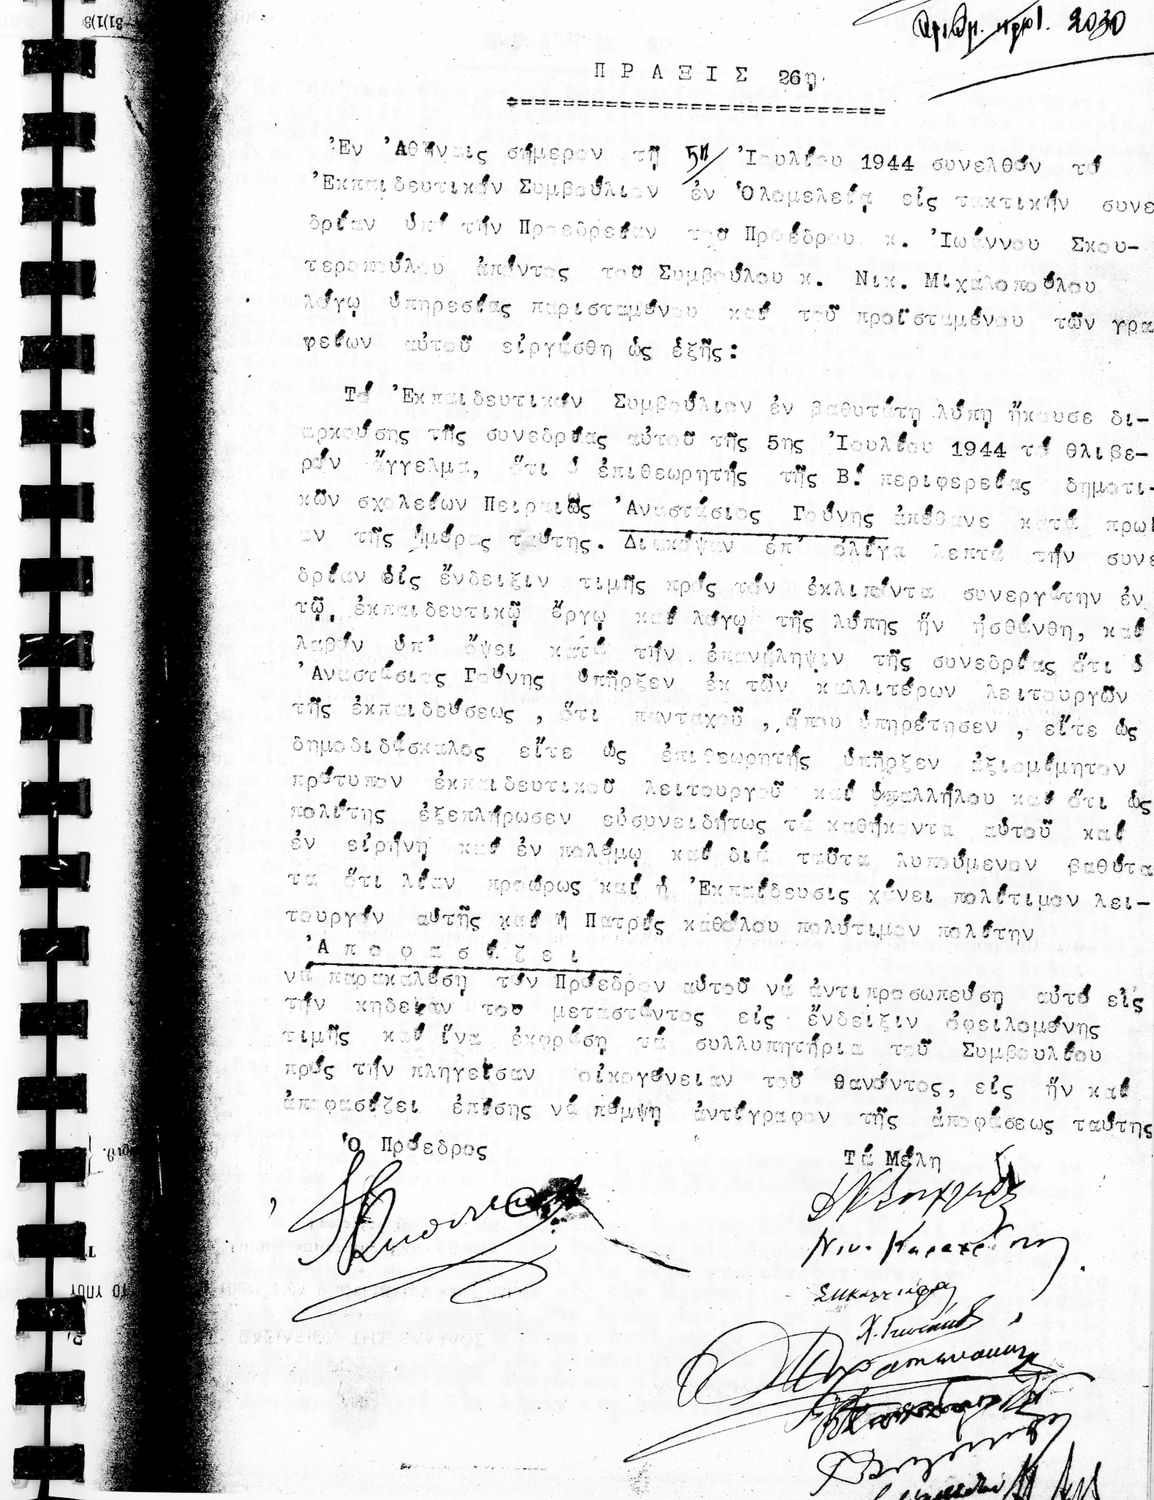 αριθμ. πρωτ. 2030
ΠΡΑΞΙΣ 26η.
Ἐν Ἀθήναις σήμερον τῇ 5η Ἰουλίου 1944 συνελθόν τό
Ἐκπαιδευτικόν Συμβούλιον ἐν Ὁλομελείᾳ εἰς τακτικήν συνε
δρίαν ὑπό τήν Προεδρείαν τοῦ Προέδρου κ. Ἰωάννου Σκου-
τεροπούλου ἀπόντος τοῦ Συμβούλου κ. Νικ. Μιχαλοπούλου
λόγῳ ὑπηρεσίας παρισταμένου καί τοῦ προϊσταμένου τῶν γρα
φείων αὐτοῦ εἰργάσθη ὡς ἑξῆς:
Τό Ἐκπαιδευτικόν Συμβούλιον ἐν βαθυτάτῃ λύπῃ ἤκουσε δι-
αρκούσης τῆς συνεδρίας αὐτοῦ τῆς 5ης Ἰουλίου 1944 τό θλιβε-
ρόν ἄγγελμα, ὅτι ὁ ἐπιθεωρητής τῆς Β. περιφερείας δημοτι-
κῶν σχολείων Πειραιῶς Ἀναστάσιος Γούνης ἀπέθανε κατά πρωΐ
αν τῆς ἡμέρας ταύτης. Διακόψαν ἐπ' ὀλίγα λεπτά τήν συνε
δρίαν εἰς ἔνδειξιν τιμῆς πρός τόν ἐκλιπόντα συνεργάτην ἐν
τῷ ἐκπαιδευτικῷ ἔργῳ καί λόγῳ τῆς λύπης ἥν ἠσθάνθη, καί
λαβόν ὑπ' ὄψει κατά τήν ἐπανάληψιν τῆς συνεδρίας ὅτι ὁ
Ἀναστάσιος Γούνης ὑπῆρξεν ἐκ τῶν καλλιτέρων λειτουργῶν
τῆς ἐκπαιδεύσεως , ὅτι πανταχοῦ , ὅπου ὑπηρέτησεν , εἴτε ὡς
δημοδιδάσκαλος εἴτε ὡς ἐπιθεωρητής ὑπῆρξεν ἀξιομίμητον
πρότυπον ἐκπαιδευτικοῦ λειτουργοῦ καί ὑπαλλήλου καί ὅτι ὡς
πολίτης ἐξεπλήρωσεν εὐσυνειδήτως τά καθήκοντα αὐτοῦ καί
ἐν εἰρήνῃ καί ἐν πολέμῳ καί διά ταῦτα λυπούμενον βαθύτα
τα ὅτι λίαν προώρως καί ἡ Ἐκπαίδευσις χάνει πολύτιμον λει-
τουργόν αὐτῆς καί ἡ Πατρίς καθόλου πολύτιμον πολίτην
Ἀποφασίζει
νά παρακαλέσῃ τόν Πρόεδρον αὐτοῦ νά ἀντιπροσωπεύσῃ αὐτό εἰς
τήν κηδείαν του μεταστάντος εἰς ἔνδειξιν ὀφειλομένης
τιμῆς καί ἵνα ἐκφράσῃ τά συλλυπητήρια τοῦ Συμβουλίου
πρός τήν πληγεῖσαν οἰκογένειαν τοῦ θανόντος, εἰς ἥν καί
ἀποφασίζει ἐπίσης νά πέμψῃ ἀντίγραφον τῆς ἀποφάσεως ταύτης
Ὁ Πρόεδρος
Τά Μέλη